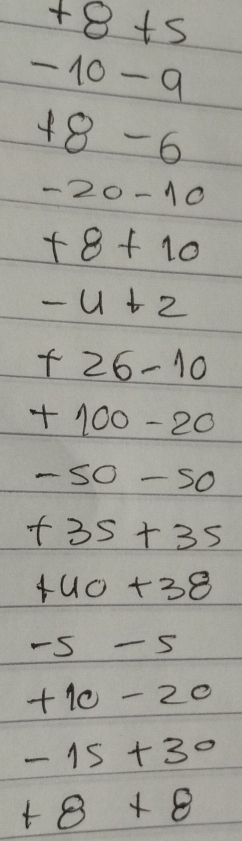 +8 +5
-10 -9
+8 -6
-20-10
+8 + 10
-4 +2
+ 26-10
+ 100 -20
-50 -50
+35 +35
+40 +38
-5 -5
+10 -20
-15 +30
+8 +8